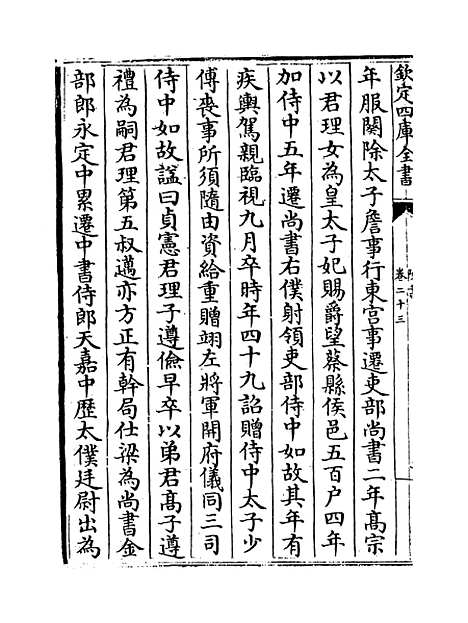 欽定四庫全書
卷二十三
年服闋除太子詹事行東宫事遷吏部尚書二年髙宗
以君理女為皇太子妃賜爵望蔡縣侯邑五百户四年
加侍中五年遷尚書右僕射領吏部侍中如故其年有
疾輿駕親臨視九月卒時年四十九詔贈侍中太子少
傅喪事所須隨由資給重贈翊左將軍開府儀同三司
侍中如故諡曰貞憲君理子遵儉早卒以弟君髙子遵
禮為嗣君理第五叔邁亦方正有幹局仕梁為尚書金
部郎永定中累遷中書侍郎天嘉中歴太僕廷尉出為